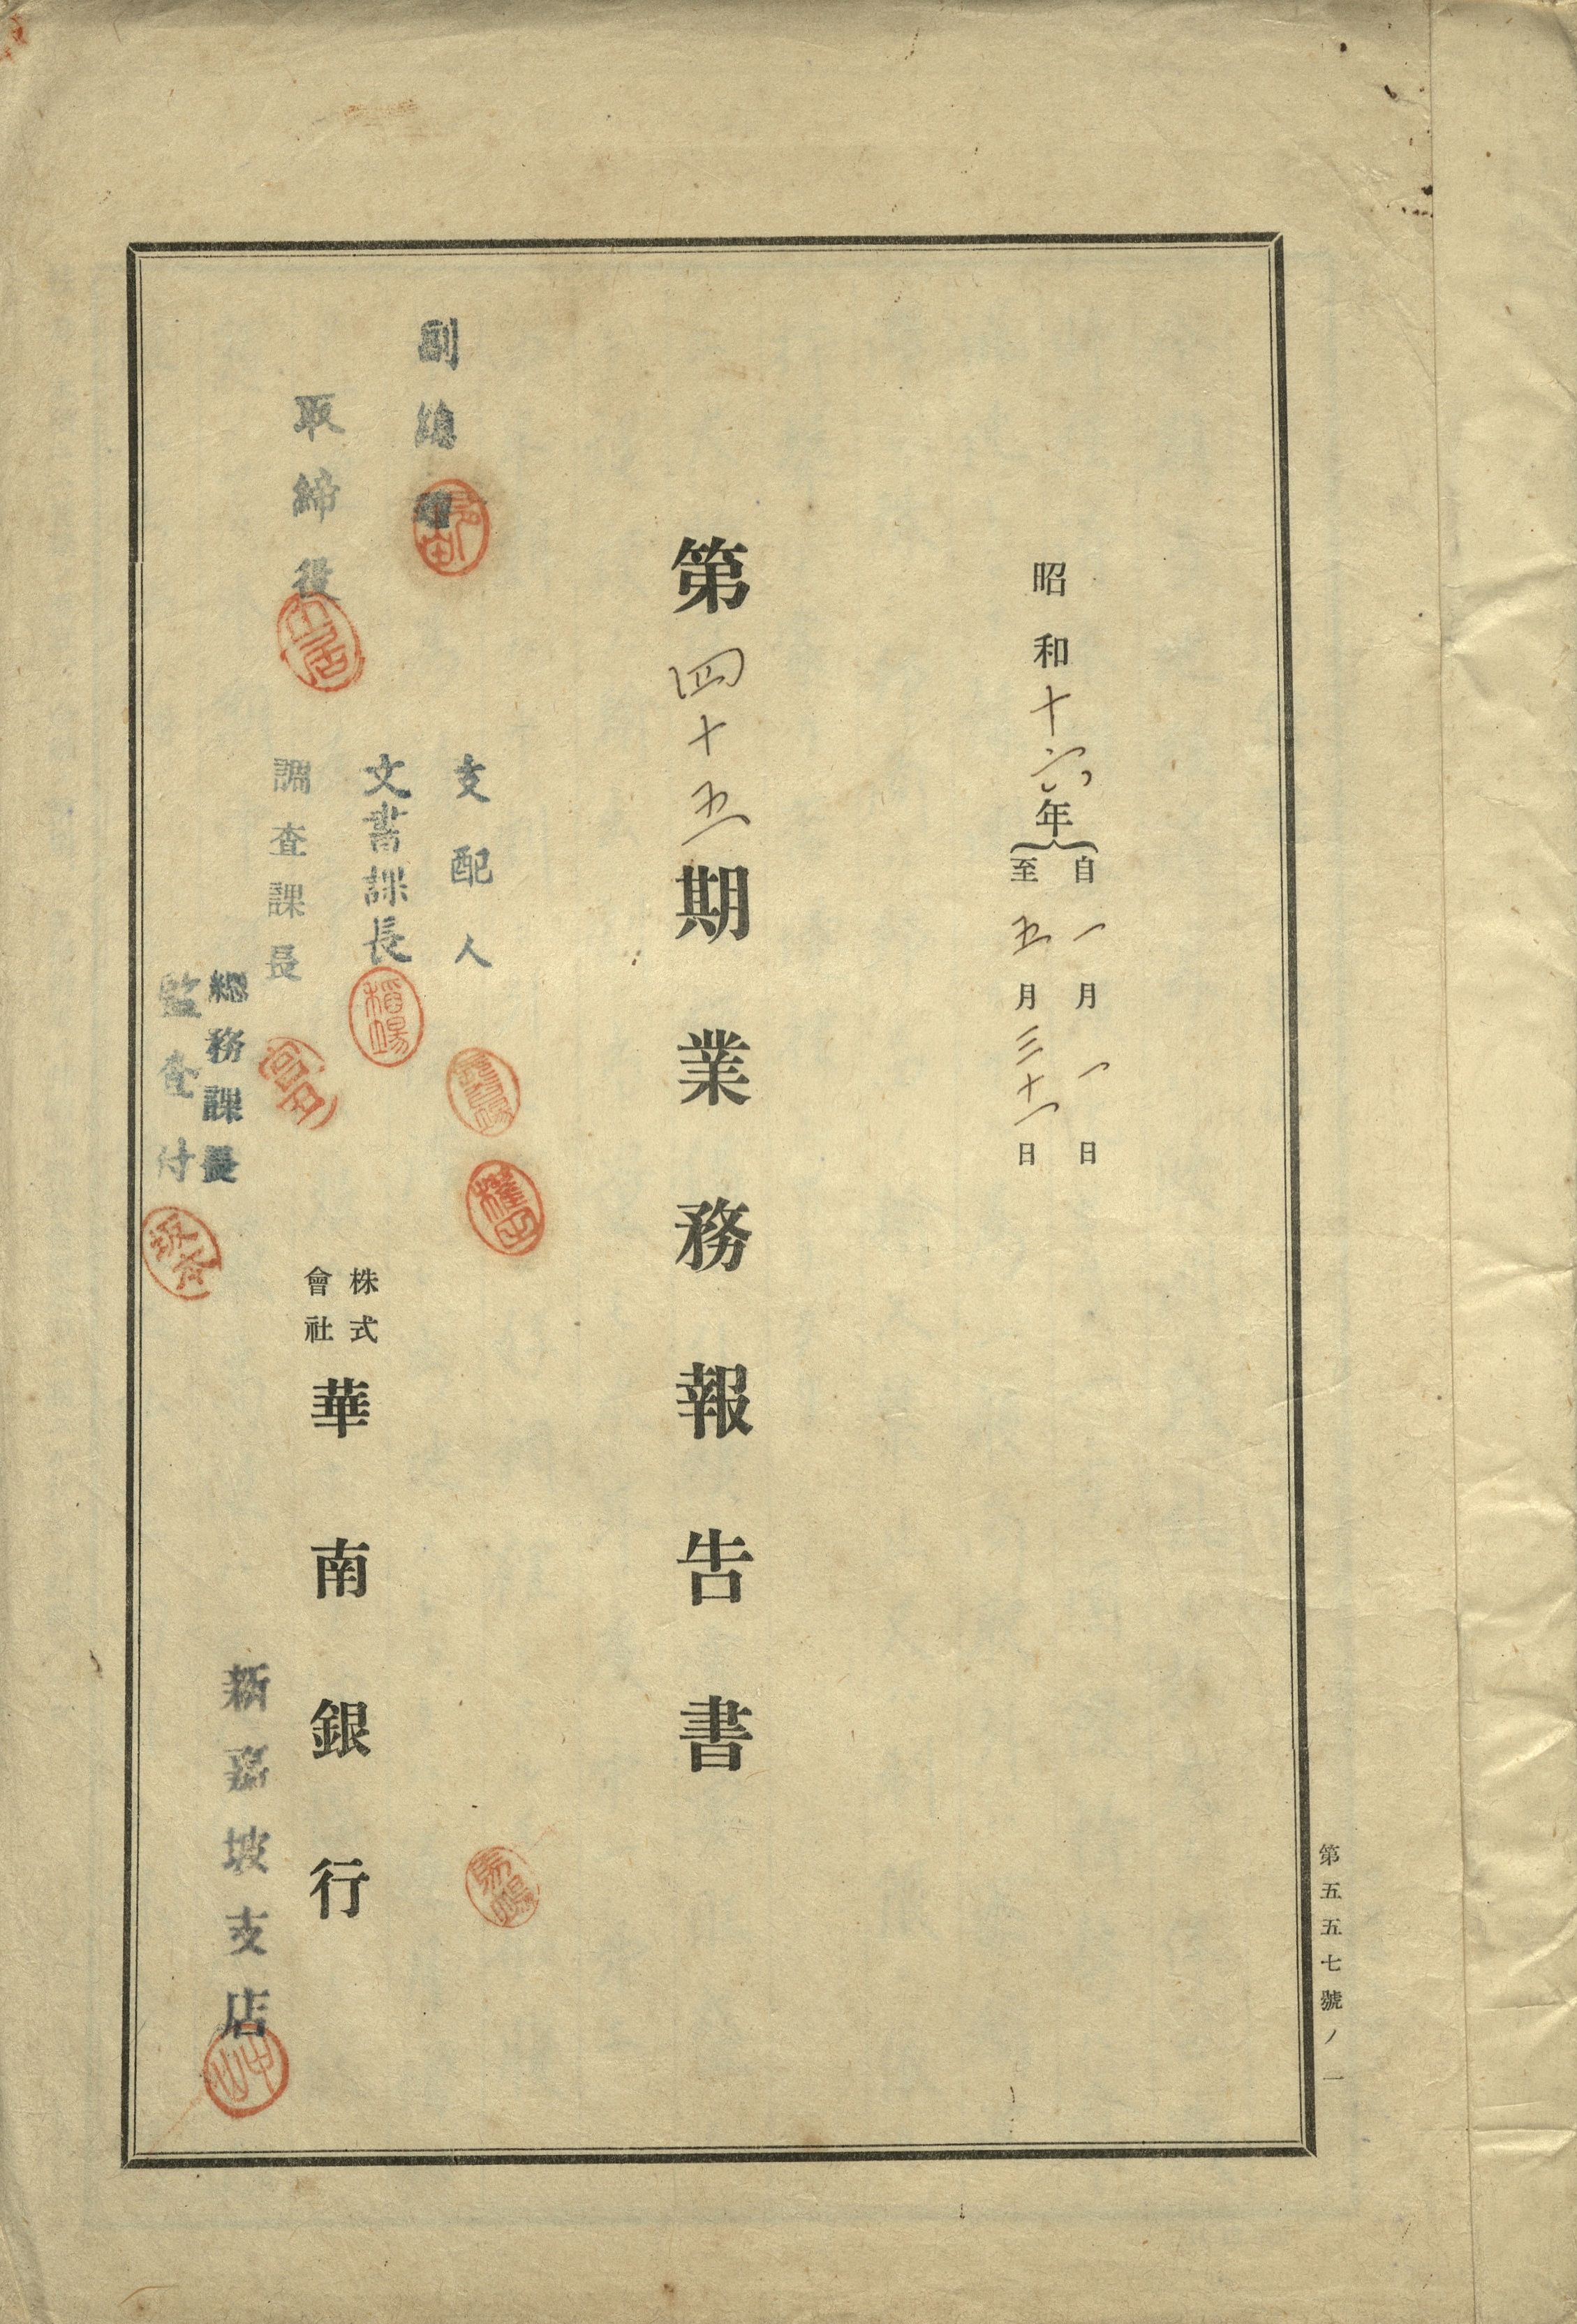 昭和十六年
自一月一日
至五月三十一日
第四十五期業務報告書
副總理
取締役
支配人
文書課長
調査課長
總務課長
監査付
株式會社
華南銀行
新嘉坡支店
第五五七號ノ一
稻場